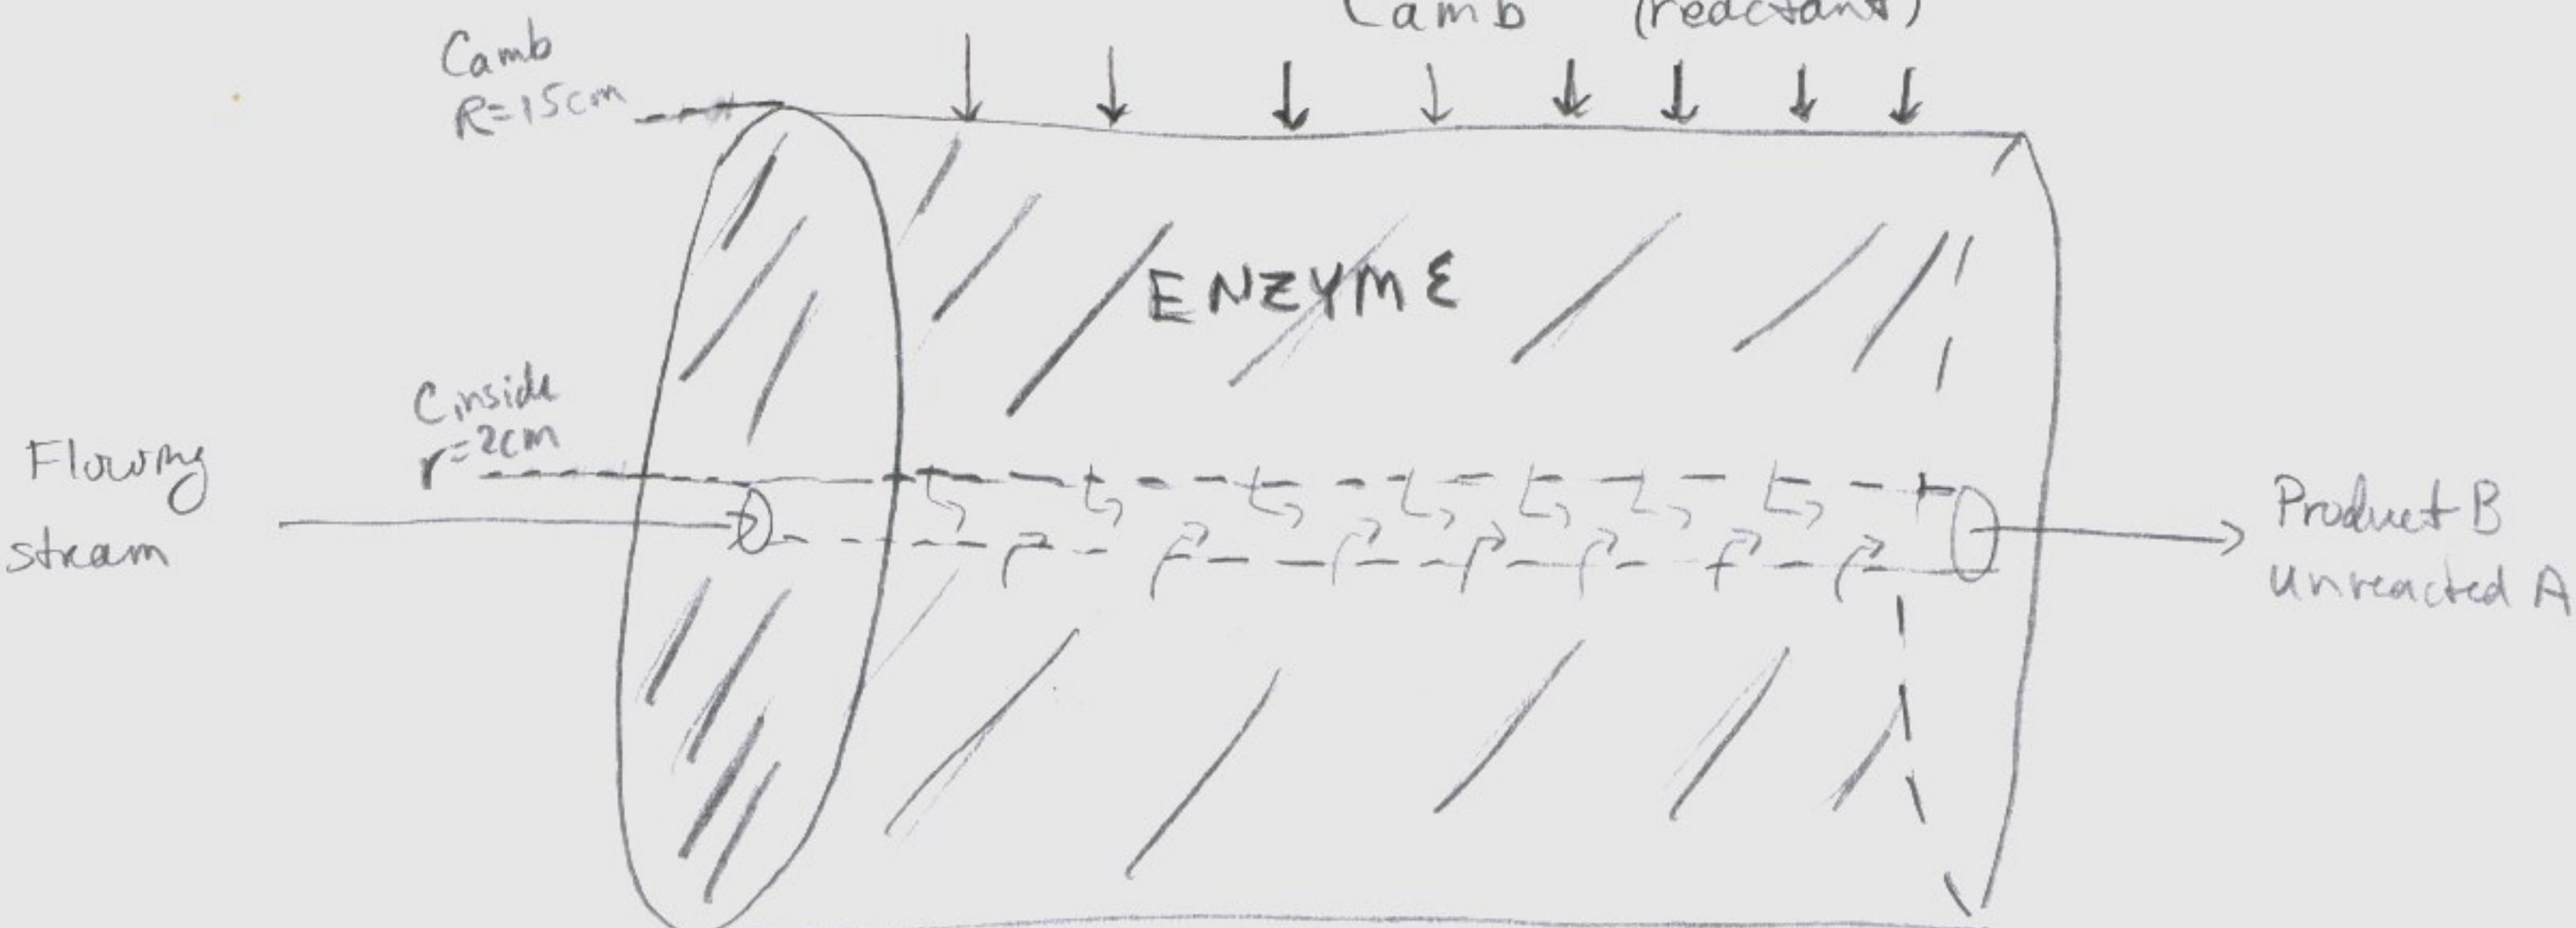 Camb (reactant)
Camb
R=15cm
ENZYME
Cinside
r=2cm
Flowing
stream
Product B
unreacted A